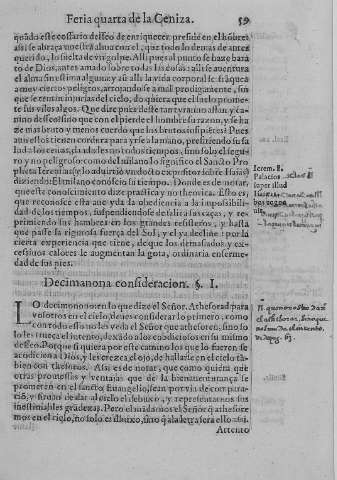 Feria quarta de la Ceniza. 59
quãdo este cossario desseo de enriquecer preside en el hõbre,
assi se abraça nuestra alma con el, que todo lo demas de antes
querido, lo suelta de vn golpe. Alli pues al punto se haze bara
to de Dios, antes amado sobre todas las cosas: alli se auentura
el alma sin estima alguna, y aũ alli la vida corporal se frãquea
a muy ciertos peligros, arrojandose a mall prodigamente, sin
que se temã injurias del cielo, do quiera que el suelo prome-
te sus viles algos. Que dire pues deste tan tyranno afan, y ca-
mino desseoso que con el pierde el hombre su razon, y se ha
ze mas bruto y menos cuerdo que los brutos insipiẽtes? Pues
aun estos tienen cordura para yrse la mano, prefiriendo su sa
lud a los temas, dando les los todos tiempos, sino solo el segu-
ro y no peligroso: como del milano lo significo el Sancto Pro
pheta Ieremias (y lo aduirtio vn docto expositor sobre Isaias)
diziendo: El milano conosce su tiempo. Donde es de notar,
que este conoscimiento dize practica y no theorica. Esto es,
que reconosce esta aue y da la obediencia a la impossibili-
dad de los tiempos, suspendiendose de salir a sus caças, y re-
primiendo sus hambres en los grandes resisteros, y hasta
que passe la rigurosa fuerça del Sol, y el ya decline: por la
cierta experiencia que tiene, de que los demasados, y ex-
cessiuos calores le augmentan la gota, ordinaria enferme-
dad de sus pies.
Ierem. 8.
Palacios
super illud
Decimanona consideracion. §. I.
LO decimonono en lo que dize el Señor. Athesorad para
vosotros en el cielo, deues considerar lo primero, como
con todo esto no les veda el Señor que athesoren, sino so-
lo les trueca el intento, dexãdo a los codiciosos en su mismo
desseo. Porque si quiera por este camino los que lo fueren, se
acodicien a Dios, y les crezca el ojo, de hallarse en el cielo tã
bien con thesoros. Assi es de notar, que como quiera que
otras promessas y ventajas que de la bienauenturança se
prometen en el sancto Euangelio, sean por via de compara-
ciõ, y siruan de dar al cielo el debuxo, y representarnos sus
inestimables grãdezas. Pero el mãdarnos el Señor q̃ athesore
mos en el cielo, no solo es dibuxo, sino q̃ a la letra sera ello assi.
Attento